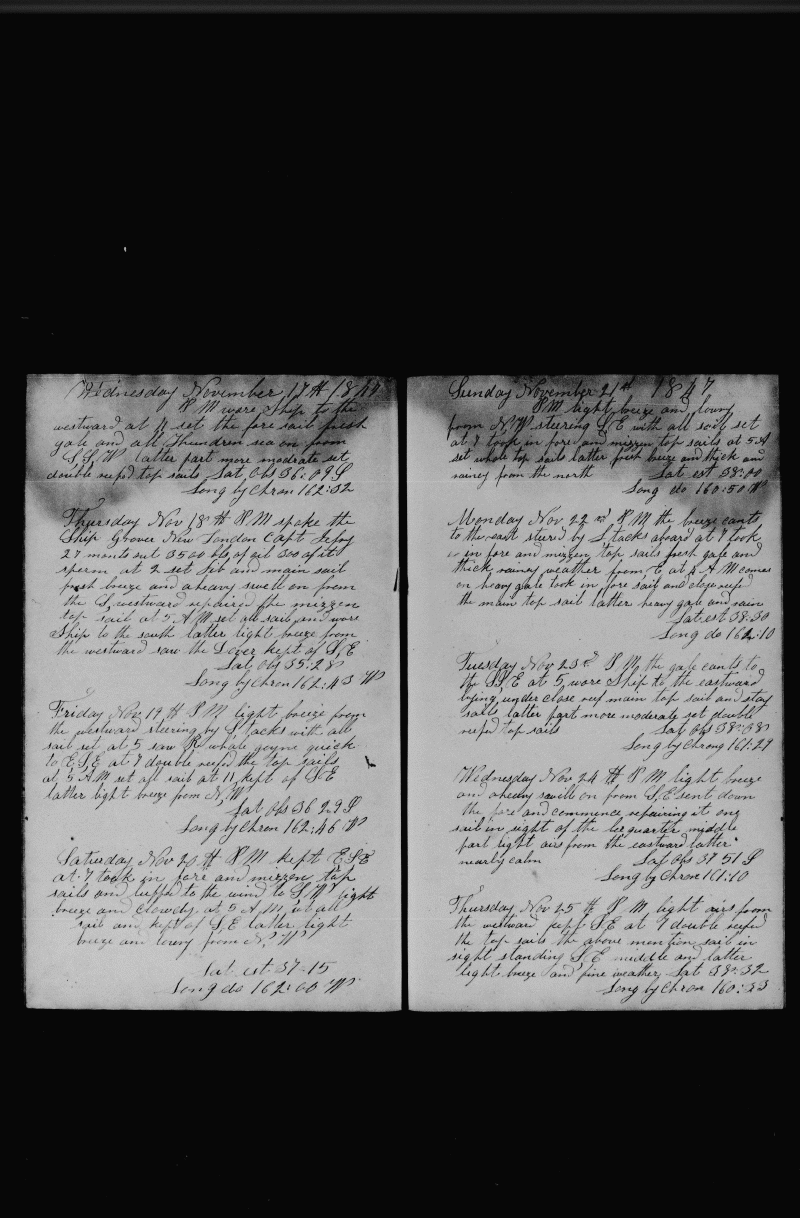 Wednesday November 17th 1847
P M wore Ship to the
westward at 11 set the fore sail fresh
gale and all thundren sea on from
S.S.W. latter part more moderate set
double reefd top sails Lat Obs 36:09 S
Long by Chron 162:32
Thursday Nov 18th P.M spoke the
Ship New London Capt
27 months out 3500 bbls of oil 300 of its
sperm at 2 set Jib and main sail
fresh breeze and a heavy swell on from
the S, westward repaired the mizzen
top sail at 5 A M set all sail and wore
Ship to the south latter light breeze from
the westward saw the kept of S,E
Lat Obs 35:28
Long by Chron 162:43 W
Friday Nov 19th P M light breeze from
the westward steering by S tacks with all
sail set at 5 saw whale goyne quick
to E S,E at 7 double reefd the top sails
at 5 A M set all sail at 11, kept of S,E
latter light breeze from N, W
Lat Obs 36 29 S
Long by Chron 162:46 W
Saturday Nov 20th P M kept E,S,E
at 7 took in fore and mizzen top
sails and luffed to the wind to S,W light
breeze and clowdy at 5 A.M, set all
sail and kept of S,E latter light
breeze and lowry from N, W
Lat est 37-15
Long do 162:00 W
Sunday November 21st 1847
P.M light breeze and lowry
from N,W steering S,E with all sail set
at 7 took in fore and mizzen top sails at 5 A
set whole top sails latter fresh breeze and thick and
rainey from the north Lat est 38:00
Long do 160:50 W
Monday Nov 22nd P M the breeze cants
to the east stered by S, tacks aboard at 7 took
in fore and mizzen top sails fresh gale and
thick rainey weather from E at 4 A M comes
on heavy gale took in fore sail and close reefd
the main top sail latter heavy gale and rain
Lat est 38:30
Long do 162:10
Tuesday Nov 23d P M, the gale cants to
the S,S,E at 5, wore Ship to the eastward
lying under close reef main top sail and stay
sails latter part more moderate set double
reefd top sails Lat Obs 38:08
Long by Chrong 161:29
Wednesday Nov 24th P M light breeze
and a heavy swell on from S,E sent down
the fore and commence repairing it one
sail in sight of the lee quarter middle
part light airs from the eastward latter
nearly calm Lat Obs 37 51 S
Long by Chron 161:10
Thursday Nov 25th P M, light airs from
the westward kept S,E at 7 double reefd
the top sails the above mention sail in
sight standing S,E middle and latter
light breeze and fine weather, Lat 38:32
Long by Chron 160:33